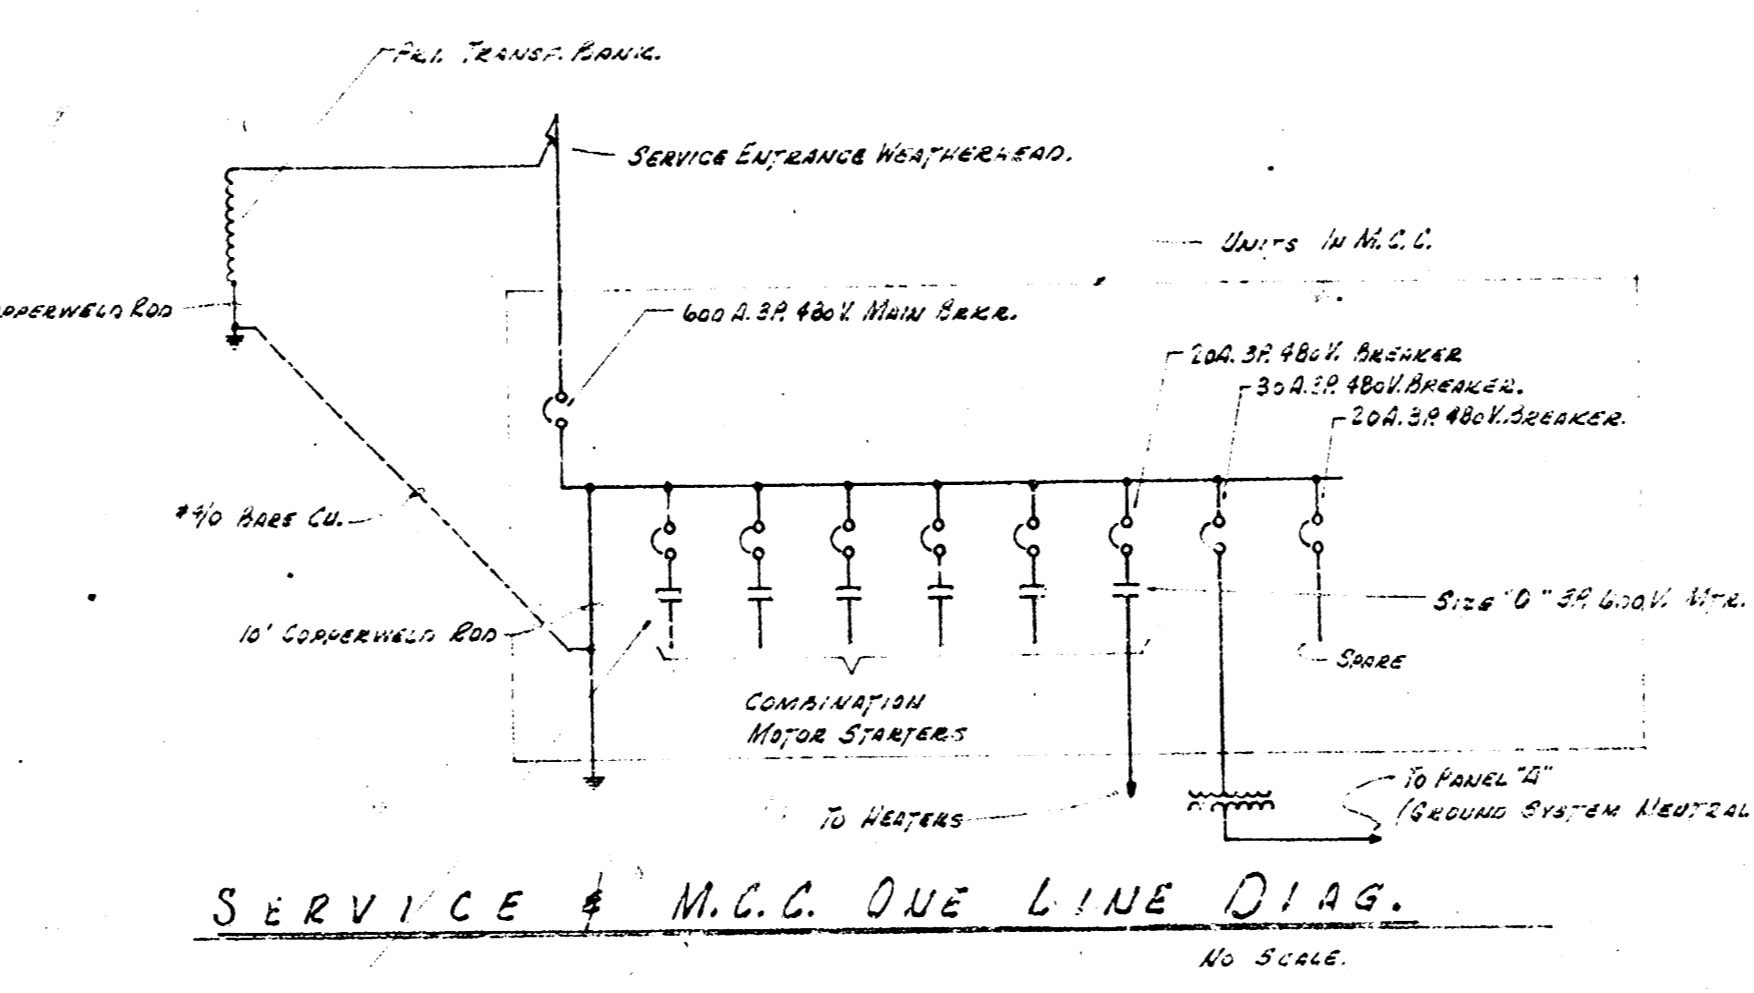 PRI. TRANSF. BANK.
SERVICE ENTRANCE WEATHERHEAD.
UNITS IN M.C.C.
OPPERWELD ROD
600 A. 3P. 480V. MAIN BRKR.
20A. 3P. 480V. BREAKER
30A. 3P. 480V. BREAKER.
20A. 3P. 480V. BREAKER.
#4/0 BARE CU.
10' COPPERWELD ROD
SIZE "0" 3P. 600V. MTR.
SPARE
COMBINATION
MOTOR STARTERS
TO HEATERS
TO PANEL "A"
(GROUND SYSTEM NEUTRAL
SERVICE & M.C.C. ONE LINE DIAG.
NO SCALE.